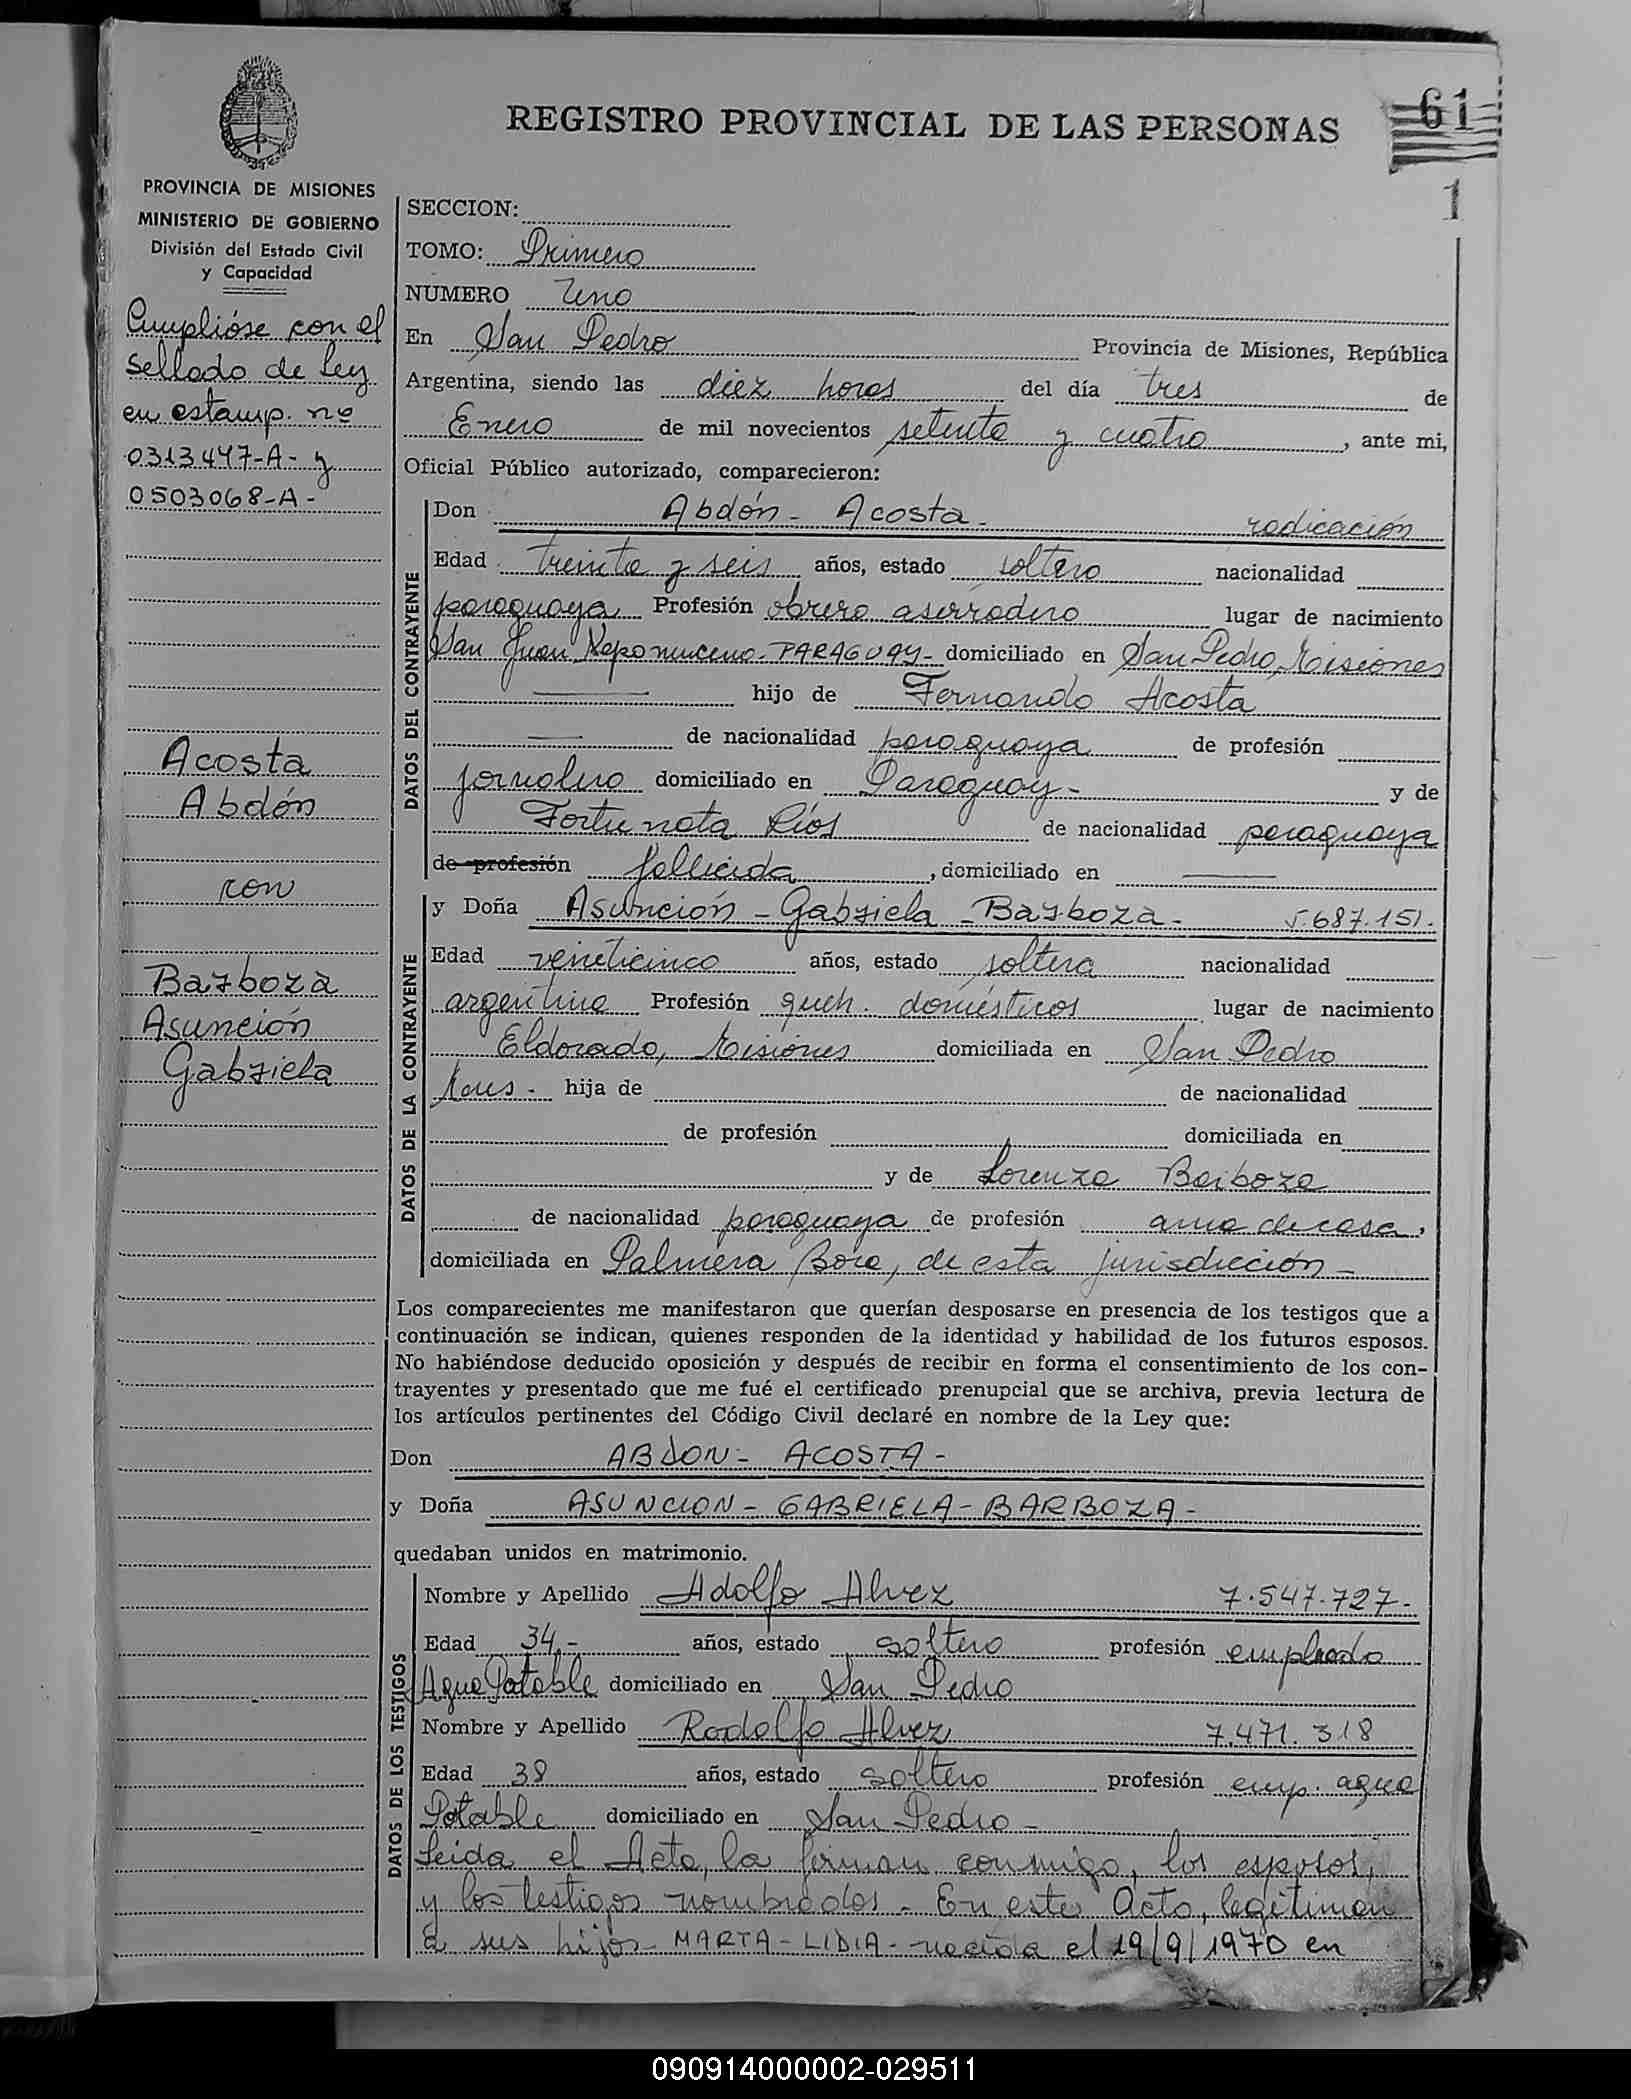 REGISTRO PROVINCIAL DE LAS PERSONAS
61
1
PROVINCIA DE MISIONES
MINISTERIO DE GOBIERNO
División del Estado Civil
y Capacidad
Cumplióse con el
sellado de Ley
en estamp. no
0313447-A- y
0503068-A-
Acosta
Abdón
con
Barboza
Asunción
Gabriela
SECCION:
TOMO: Primero
NUMERO Uno
En San Pedro Provincia de Misiones, República
Argentina, siendo las diez horas del día tres de
Enero de mil novecientos setenta y cuatro, ante mi,
Oficial Público autorizado, comparecieron:
DATOS DEL CONTRAYENTE
Don Abdón - Acosta - radicación
Edad treinta y seis años, estado soltero nacionalidad
paraguaya Profesión obrero aserradero lugar de nacimiento
San Juan Nepomuceno - PARAGUAY - domiciliado en San Pedro, Misiones
hijo de Fernando Acosta
de nacionalidad paraguaya de profesión
jornalero domiciliado en Paraguay - y de
Fortunata Ríos de nacionalidad paraguaya
de profesión fallecida, domiciliado en
DATOS DE LA CONTRAYENTE
y Doña Asunción - Gabriela - Barboza - 5.687.151.
Edad veinticinco años, estado soltera nacionalidad
argentina Profesión queh. domésticos lugar de nacimiento
Eldorado, Misiones domiciliada en San Pedro
Mnes - hija de de nacionalidad
de profesión domiciliada en
y de Lorenza Barboza
de nacionalidad paraguaya de profesión ama de casa,
domiciliada en Palmera Boca, de esta jurisdicción -
Los comparecientes me manifestaron que querían desposarse en presencia de los testigos que a
continuación se indican, quienes responden de la identidad y habilidad de los futuros esposos.
No habiéndose deducido oposición y después de recibir en forma el consentimiento de los con-
trayentes y presentado que me fué el certificado prenupcial que se archiva, previa lectura de
los artículos pertinentes del Código Civil declaré en nombre de la Ley que:
Don ABDON - ACOSTA -
y Doña ASUNCION - GABRIELA - BARBOZA -
quedaban unidos en matrimonio.
DATOS DE LOS TESTIGOS
Nombre y Apellido Adolfo Alvez 7.547.727-
Edad 34,- años, estado soltero profesión empleado
Agua Potable domiciliado en San Pedro
Nombre y Apellido Rodolfo Alvez 7.471.318
Edad 38 años, estado soltero profesión emp. agua
Potable domiciliado en San Pedro -
Leida el Acta, la firman conmigo, los esposos,
y los testigos nombrados - En este Acto, legitiman
a sus hijos - MARTA - LIDIA - nacida el 19/9/1970 en
090914000002-029511